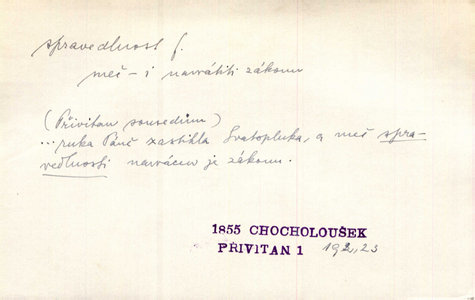 spravedlnost f.
meč – i navrátiti zákonu
(Přivitan sousedům)
...ruka Páně zastihla Svatopluka, a meč spra-
vedlnosti navrácen je zákonu.
1855 CHOCHOLOUŠEK
PŘIVITAN 1 192,23